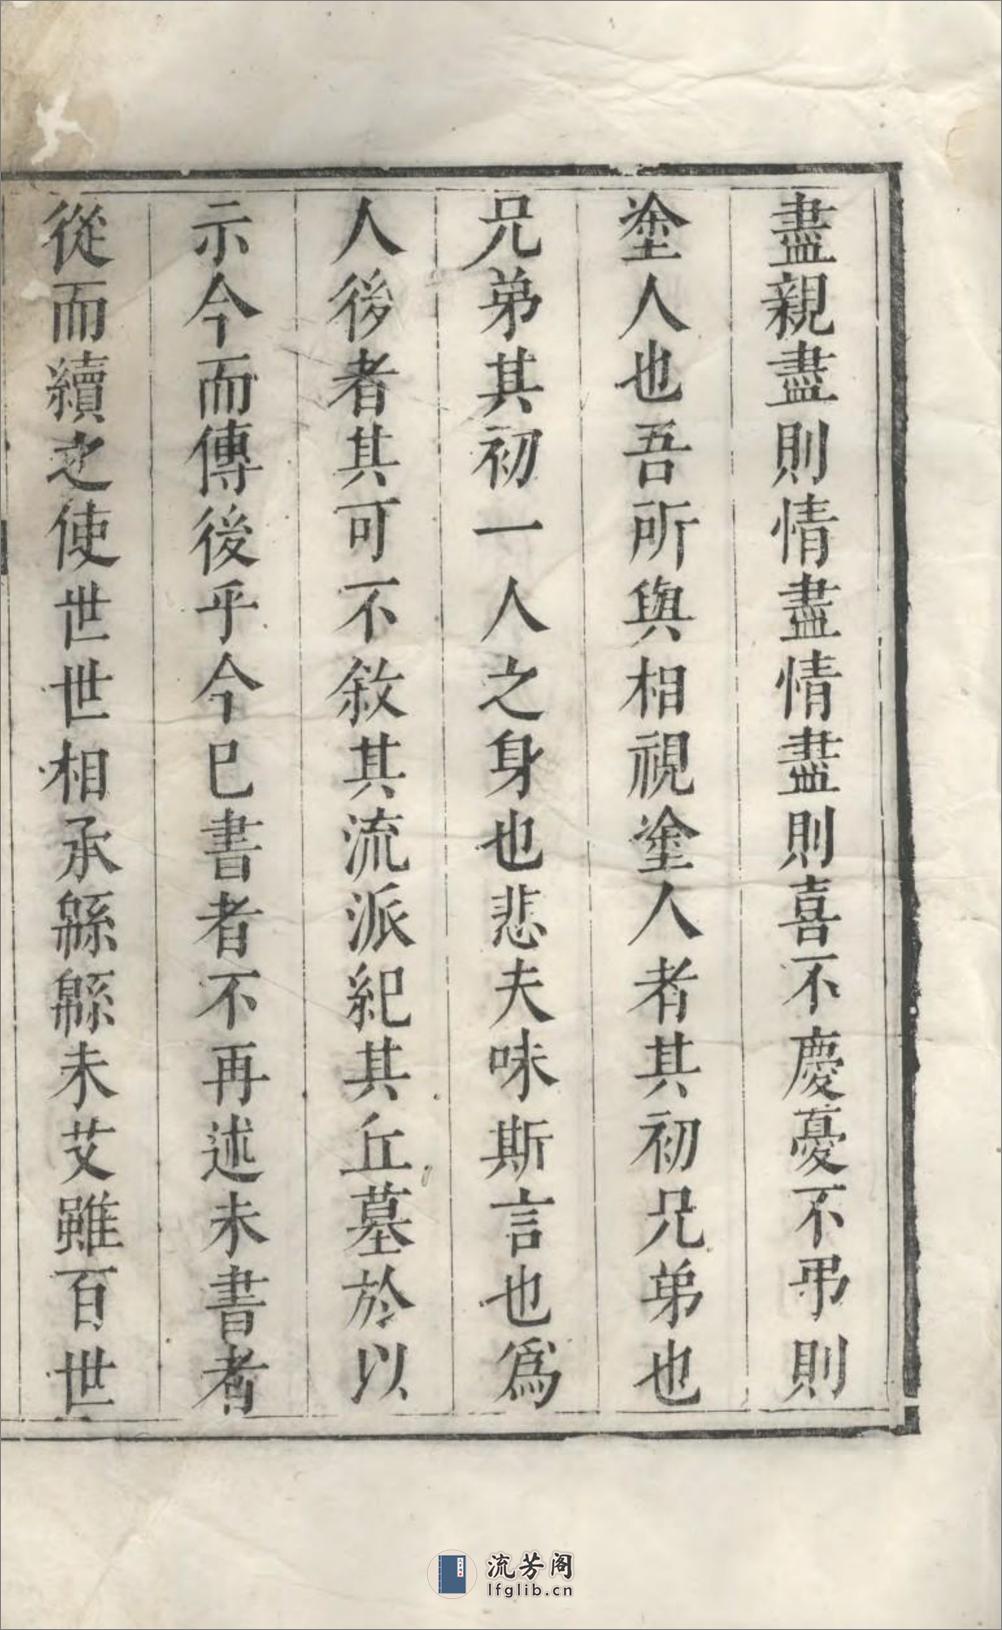 盡親盡則情盡情盡則喜不慶憂不弔則
塗人也吾所與相視塗人者其初兄弟也
兄弟其初一人之身也悲夫味斯言也爲
人後者其可不敘其流派紀其丘墓於以
示今而傳後乎今已書者不再述未書者
從而續之使世世相承緜緜未艾雖百世
流芳阁
lfglib.cn